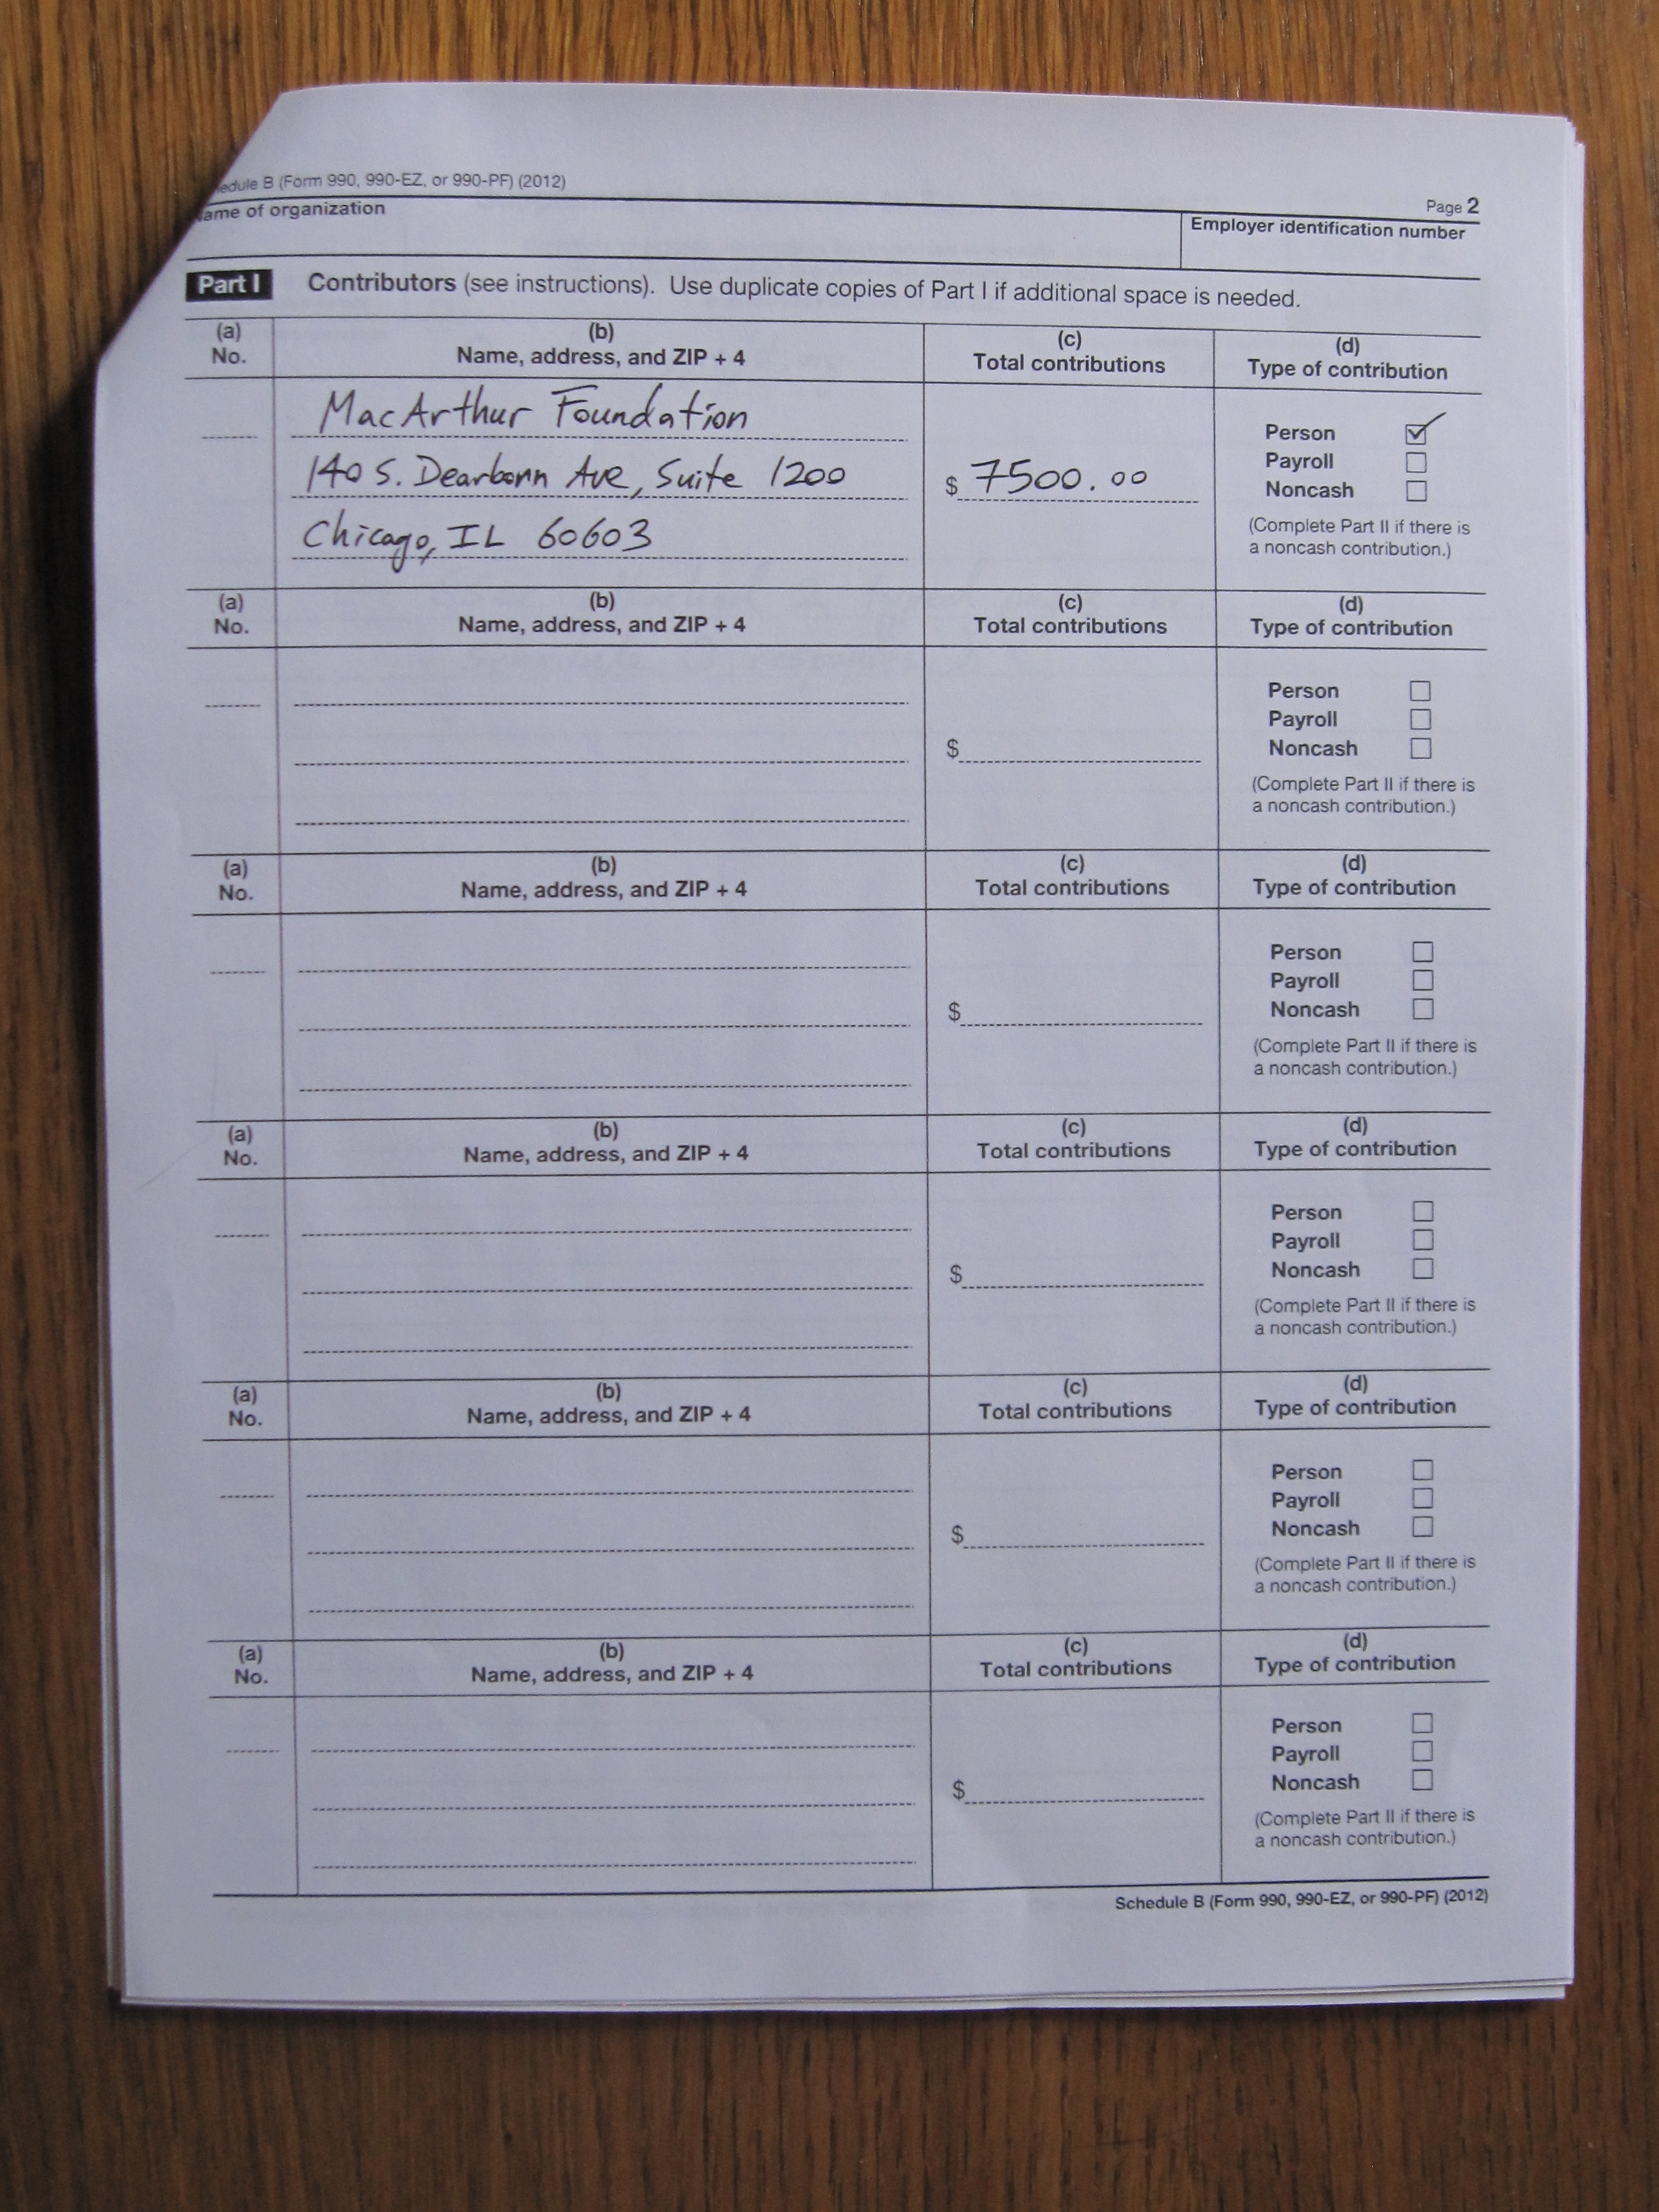 edule B (Form 990, 990-EZ, or 990-PF) (2012)
Page 2
ame of organization
Employer identification number
Part I Contributors (see instructions). Use duplicate copies of Part I if additional space is needed.
(a) (b) (c) (d)
No. Name, address, and ZIP + 4 Total contributions Type of contribution
MacArthur Foundation
Person
140 S. Dearborn Ave, Suite 1200 $ 7500.00
Payroll
Noncash
Chicago, IL 60603
(Complete Part II if there is
a noncash contribution.)
(a) (b) (c) (d)
No. Name, address, and ZIP + 4 Total contributions Type of contribution
Person
Payroll
$ Noncash
(Complete Part II if there is
a noncash contribution.)
(a) (b) (c) (d)
No. Name, address, and ZIP + 4 Total contributions Type of contribution
Person
Payroll
$ Noncash
(Complete Part II if there is
a noncash contribution.)
(a) (b) (c) (d)
No. Name, address, and ZIP + 4 Total contributions Type of contribution
Person
Payroll
$ Noncash
(Complete Part II if there is
a noncash contribution.)
(a) (b) (c) (d)
No. Name, address, and ZIP + 4 Total contributions Type of contribution
Person
Payroll
$ Noncash
(Complete Part II if there is
a noncash contribution.)
(a) (b) (c) (d)
No. Name, address, and ZIP + 4 Total contributions Type of contribution
Person
Payroll
$ Noncash
(Complete Part II if there is
a noncash contribution.)
Schedule B (Form 990, 990-EZ, or 990-PF) (2012)